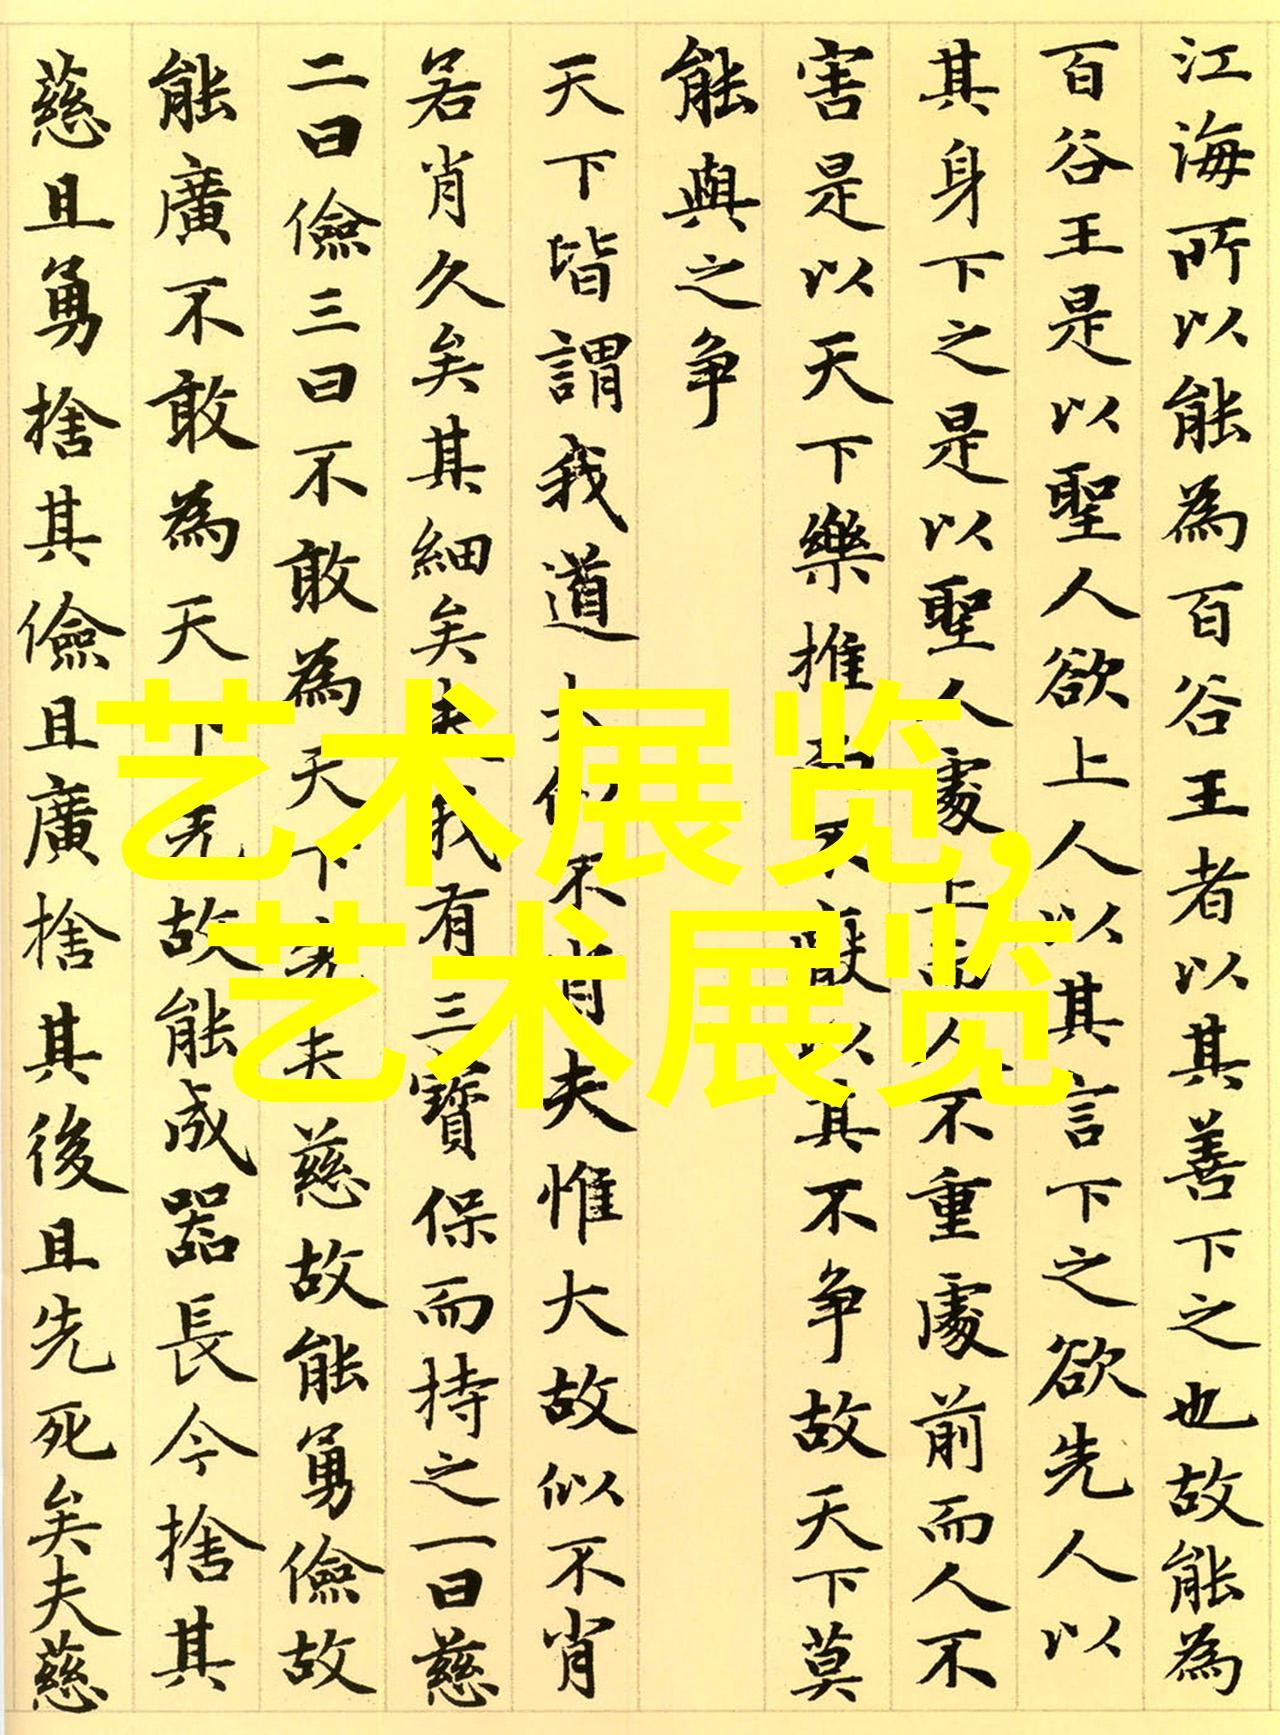 江海所以能為百谷王者以其善下之也故能為
百谷王是以聖人欲上人以其言下之欲先人以
其身下之是以聖人處上而人不重處前而人不
害是以天下樂推而不厭以其不争故天下莫
能與之争
天下皆謂我道大似不肖夫惟大故似不肖
若肖久矣其細矣夫我有三寶保而持之一曰慈
二曰儉三曰不敢為天下先夫慈故能勇儉故
能廣不敢為天下先故能成器長今捨其
慈且勇捨其儉且廣捨其後且先死矣夫慈
艺术展览,
艺术展览